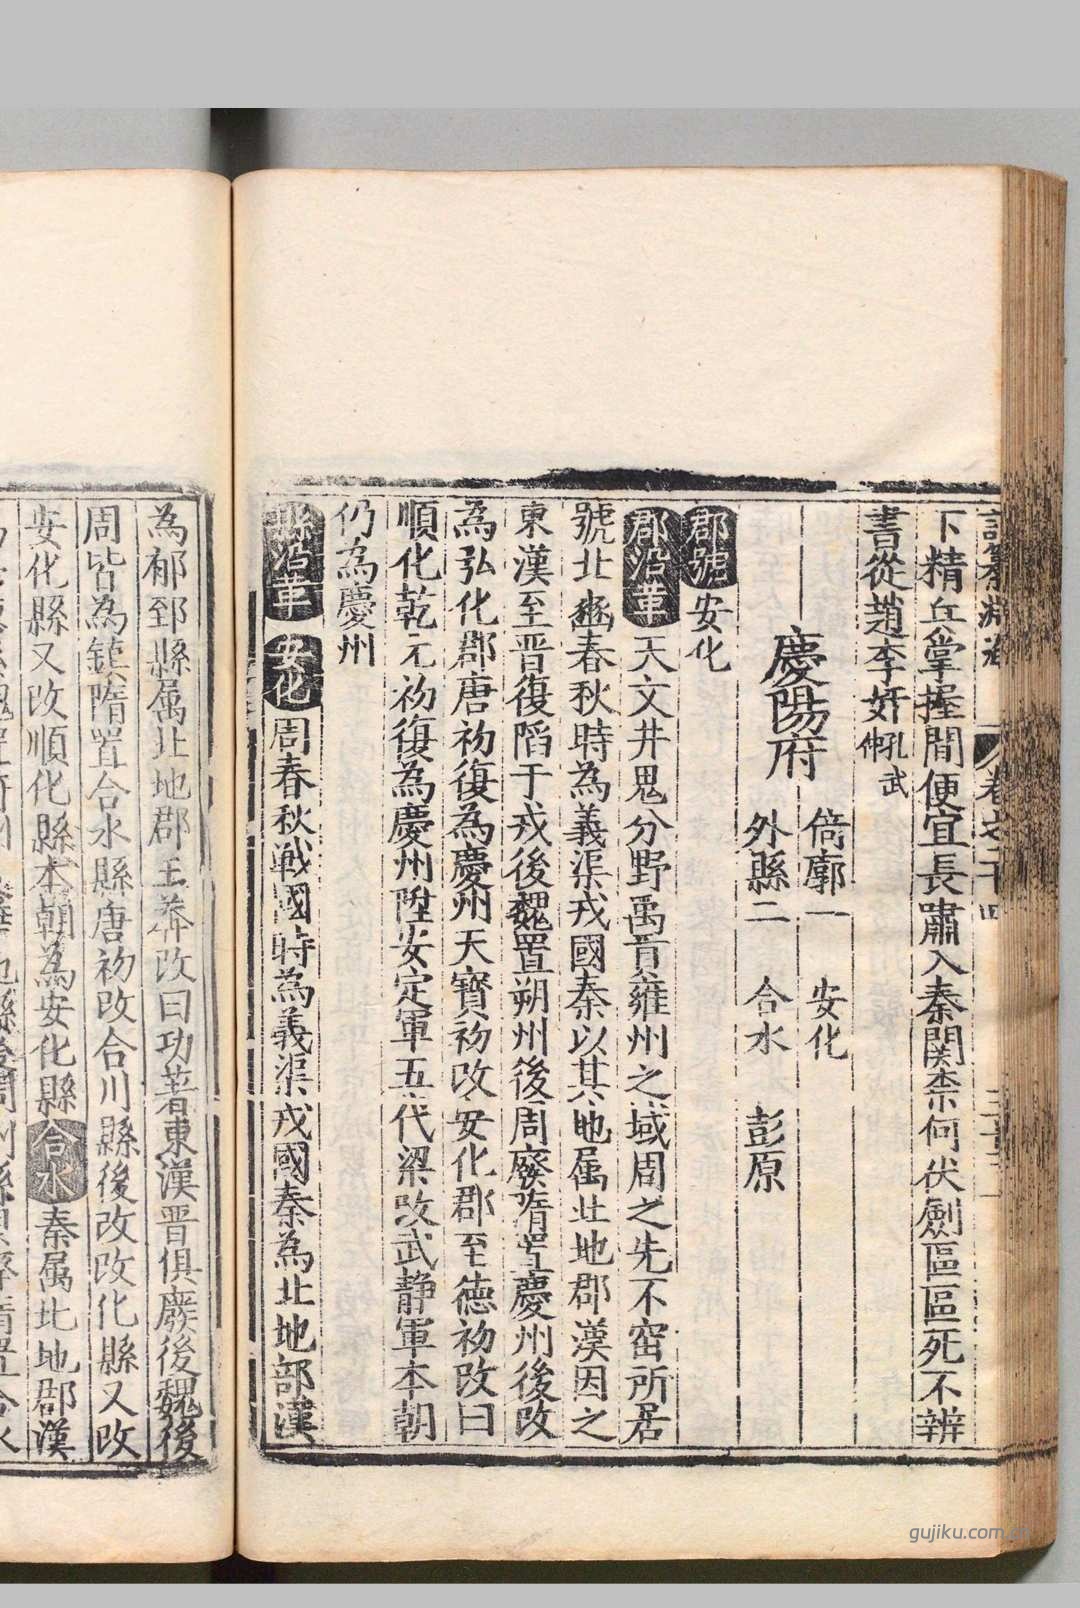 下精兵掌握間便宜長嘯入秦關柰何伏劍區區死不辨
書從趙李奸孔武仲
慶陽府
倚廓一 安化
外縣二 合水 彭原
郡號 安化
郡沿革 天文井鬼分野禹貢雍州之域周之先不窋所居
號北豳春秋時為義渠戎國秦以其地属北地郡漢因之
東漢至晋復陷于戎後魏置朔州後周廢隋置慶州後改
為弘化郡唐初復為慶州天寳初改安化郡至徳初改曰
順化乾元初復為慶州陞安定軍五代梁改武静軍本朝
仍為慶州
縣沿革 安化 周春秋戦國時為義渠戎國秦為北地部漢
為郁郅縣属北地郡王莽改曰功著東漢晋俱廢後魏後
周皆為鎮隋置合水縣唐初改合川縣後改改化縣又改
安化縣又改順化縣本朝為安化縣 合水 秦属北地郡漢
卷之十四
gujiku.com